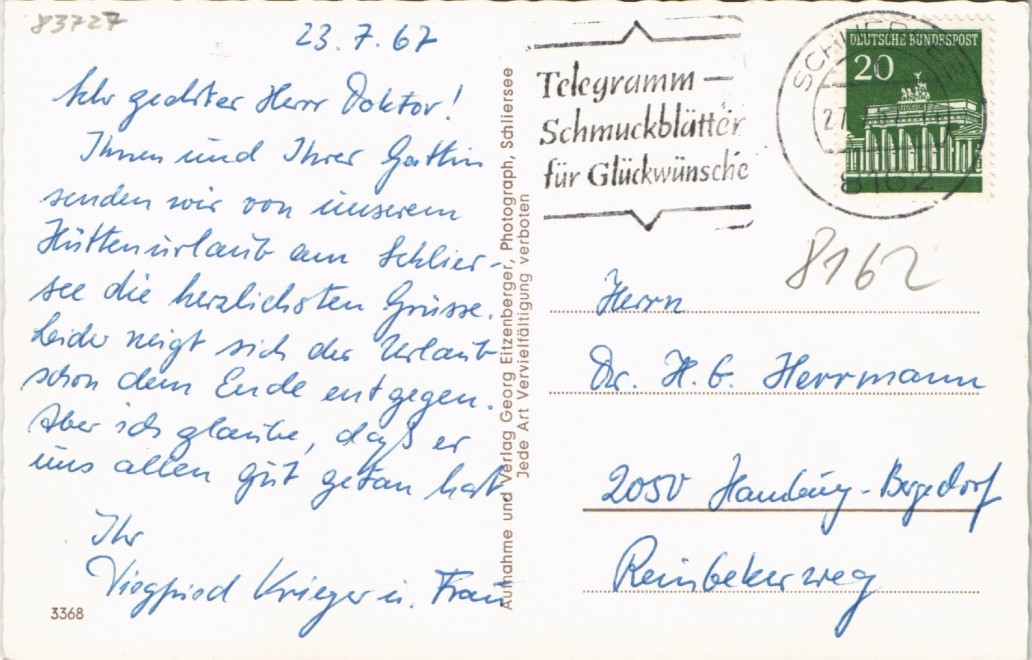 83727
23.7.67
Sehr geehrter Herr Doktor!
Ihnen und Ihrer Gattin
senden wir von unserem
Hüttenurlaub am Schlier-
see die herzlichsten Grüsse.
Leider neigt sich der Urlaub
schon dem Ende entgegen.
Aber ich glaube, daß er
uns allen gut getan hat
Ihr
Siegfried Krieger u. Frau
3368
Aufnahme und Verlag Georg Eitzenberger, Photograph, Schliersee
Jede Art Vervielfältigung verboten
Telegramm –
Schmuckblätter
für Glückwünsche
DEUTSCHE BUNDESPOST
20
8162
8162
Herrn
Dr. H. G. Herrmann
2050 Hamburg-Bergedorf
Reinbekerweg